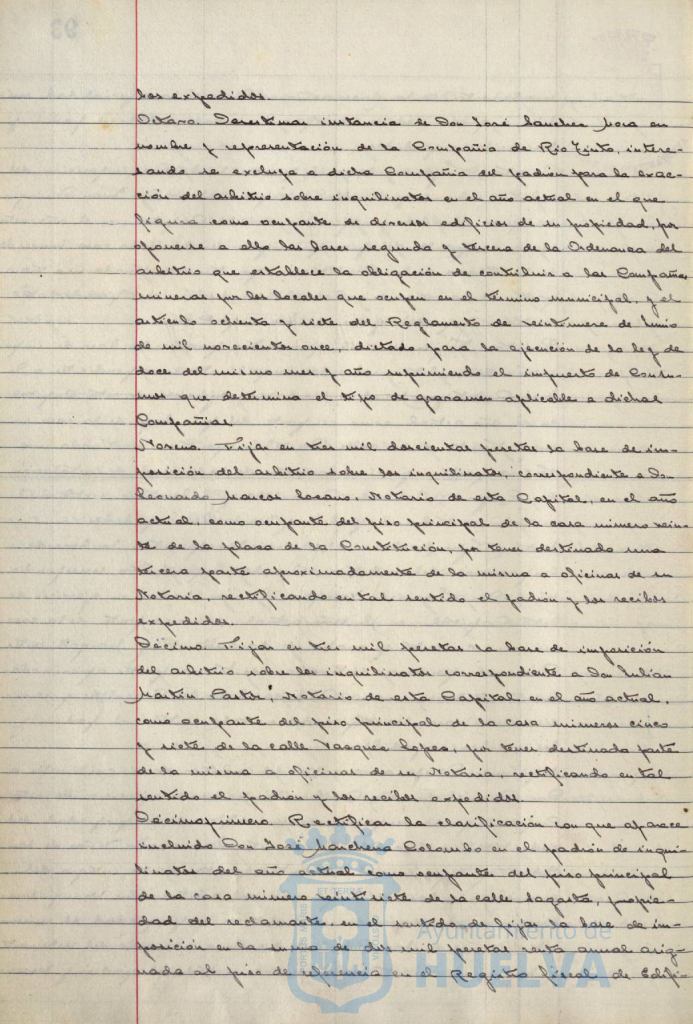 los expedidos.
Octavo. Desestimar instancia de Don José Sanchez Mora en
nombre y representación de la Compañía de Rio Tinto, intere-
sando se excluya a dicha Compañía del padrón para la exac-
ción del arbitrio sobre inquilinatos en el año actual en el que
figura como ocupante de diversos edificios de su propiedad, por
oponerse a ello las bases segunda y tercera de la Ordenanza del
arbitrio que establece la obligación de contribuir a las Compañías
mineras por los locales que ocupen en el término municipal, y el
artículo ochenta y siete del Reglamento de veintinueve de Junio
de mil novecientos once, dictado para la ejecución de la ley de
doce del mismo mes y año suprimiendo el impuesto de Consu-
mos que determina el tipo de gravamen aplicable a dichas
Compañías.
Noveno. Fijar en tres mil doscientas pesetas la base de im-
posición del arbitrio sobre los inquilinatos, correspondiente a Don
Leonardo Marcos Lozano, Notario de esta Capital, en el año
actual, como ocupante del piso principal de la casa número vein-
te de la plaza de la Constitución, por tener destinado una
tercera parte aproximadamente de la misma a oficinas de su
Notaria, rectificando en tal sentido el padrón y los recibos
expedidos.
Décimo. Fijar en tres mil pesetas la base de imposición
del arbitrio sobre los inquilinatos correspondiente a Don Julian
Martin Pastor, Notario de esta Capital en el año actual,
como ocupante del piso principal de la casa números cinco
y siete de la calle Vazquez Lopez, por tener destinada parte
de la misma a oficinas de su Notaria, rectificando en tal
sentido el padrón y los recibos expedidos.
Décimoprimero. Rectificar la clasificación con que aparece
incluido Don José Marchena Colombo en el padrón de inqui-
linatos del año actual como ocupante del piso principal
de la casa número veintisiete de la calle Sagasta, propie-
dad del reclamante, en el sentido de fijar la base de im-
posición en la suma de dos mil pesetas renta anual asig-
nada al piso de referencia en el Registro fiscal de Edifi-
Ayuntamiento de
HUELVA